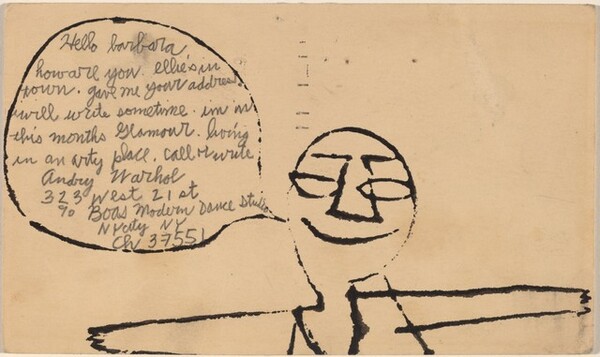 Hello barbara
how are you. ellie's in
town. gave me your address
will write sometime. im in
this months Glamour. living
in an arty place. call or write
Andrey Warhol
323 West 21 st
% Boas Modern Dance Studio
NYcity NY
Ch 37551